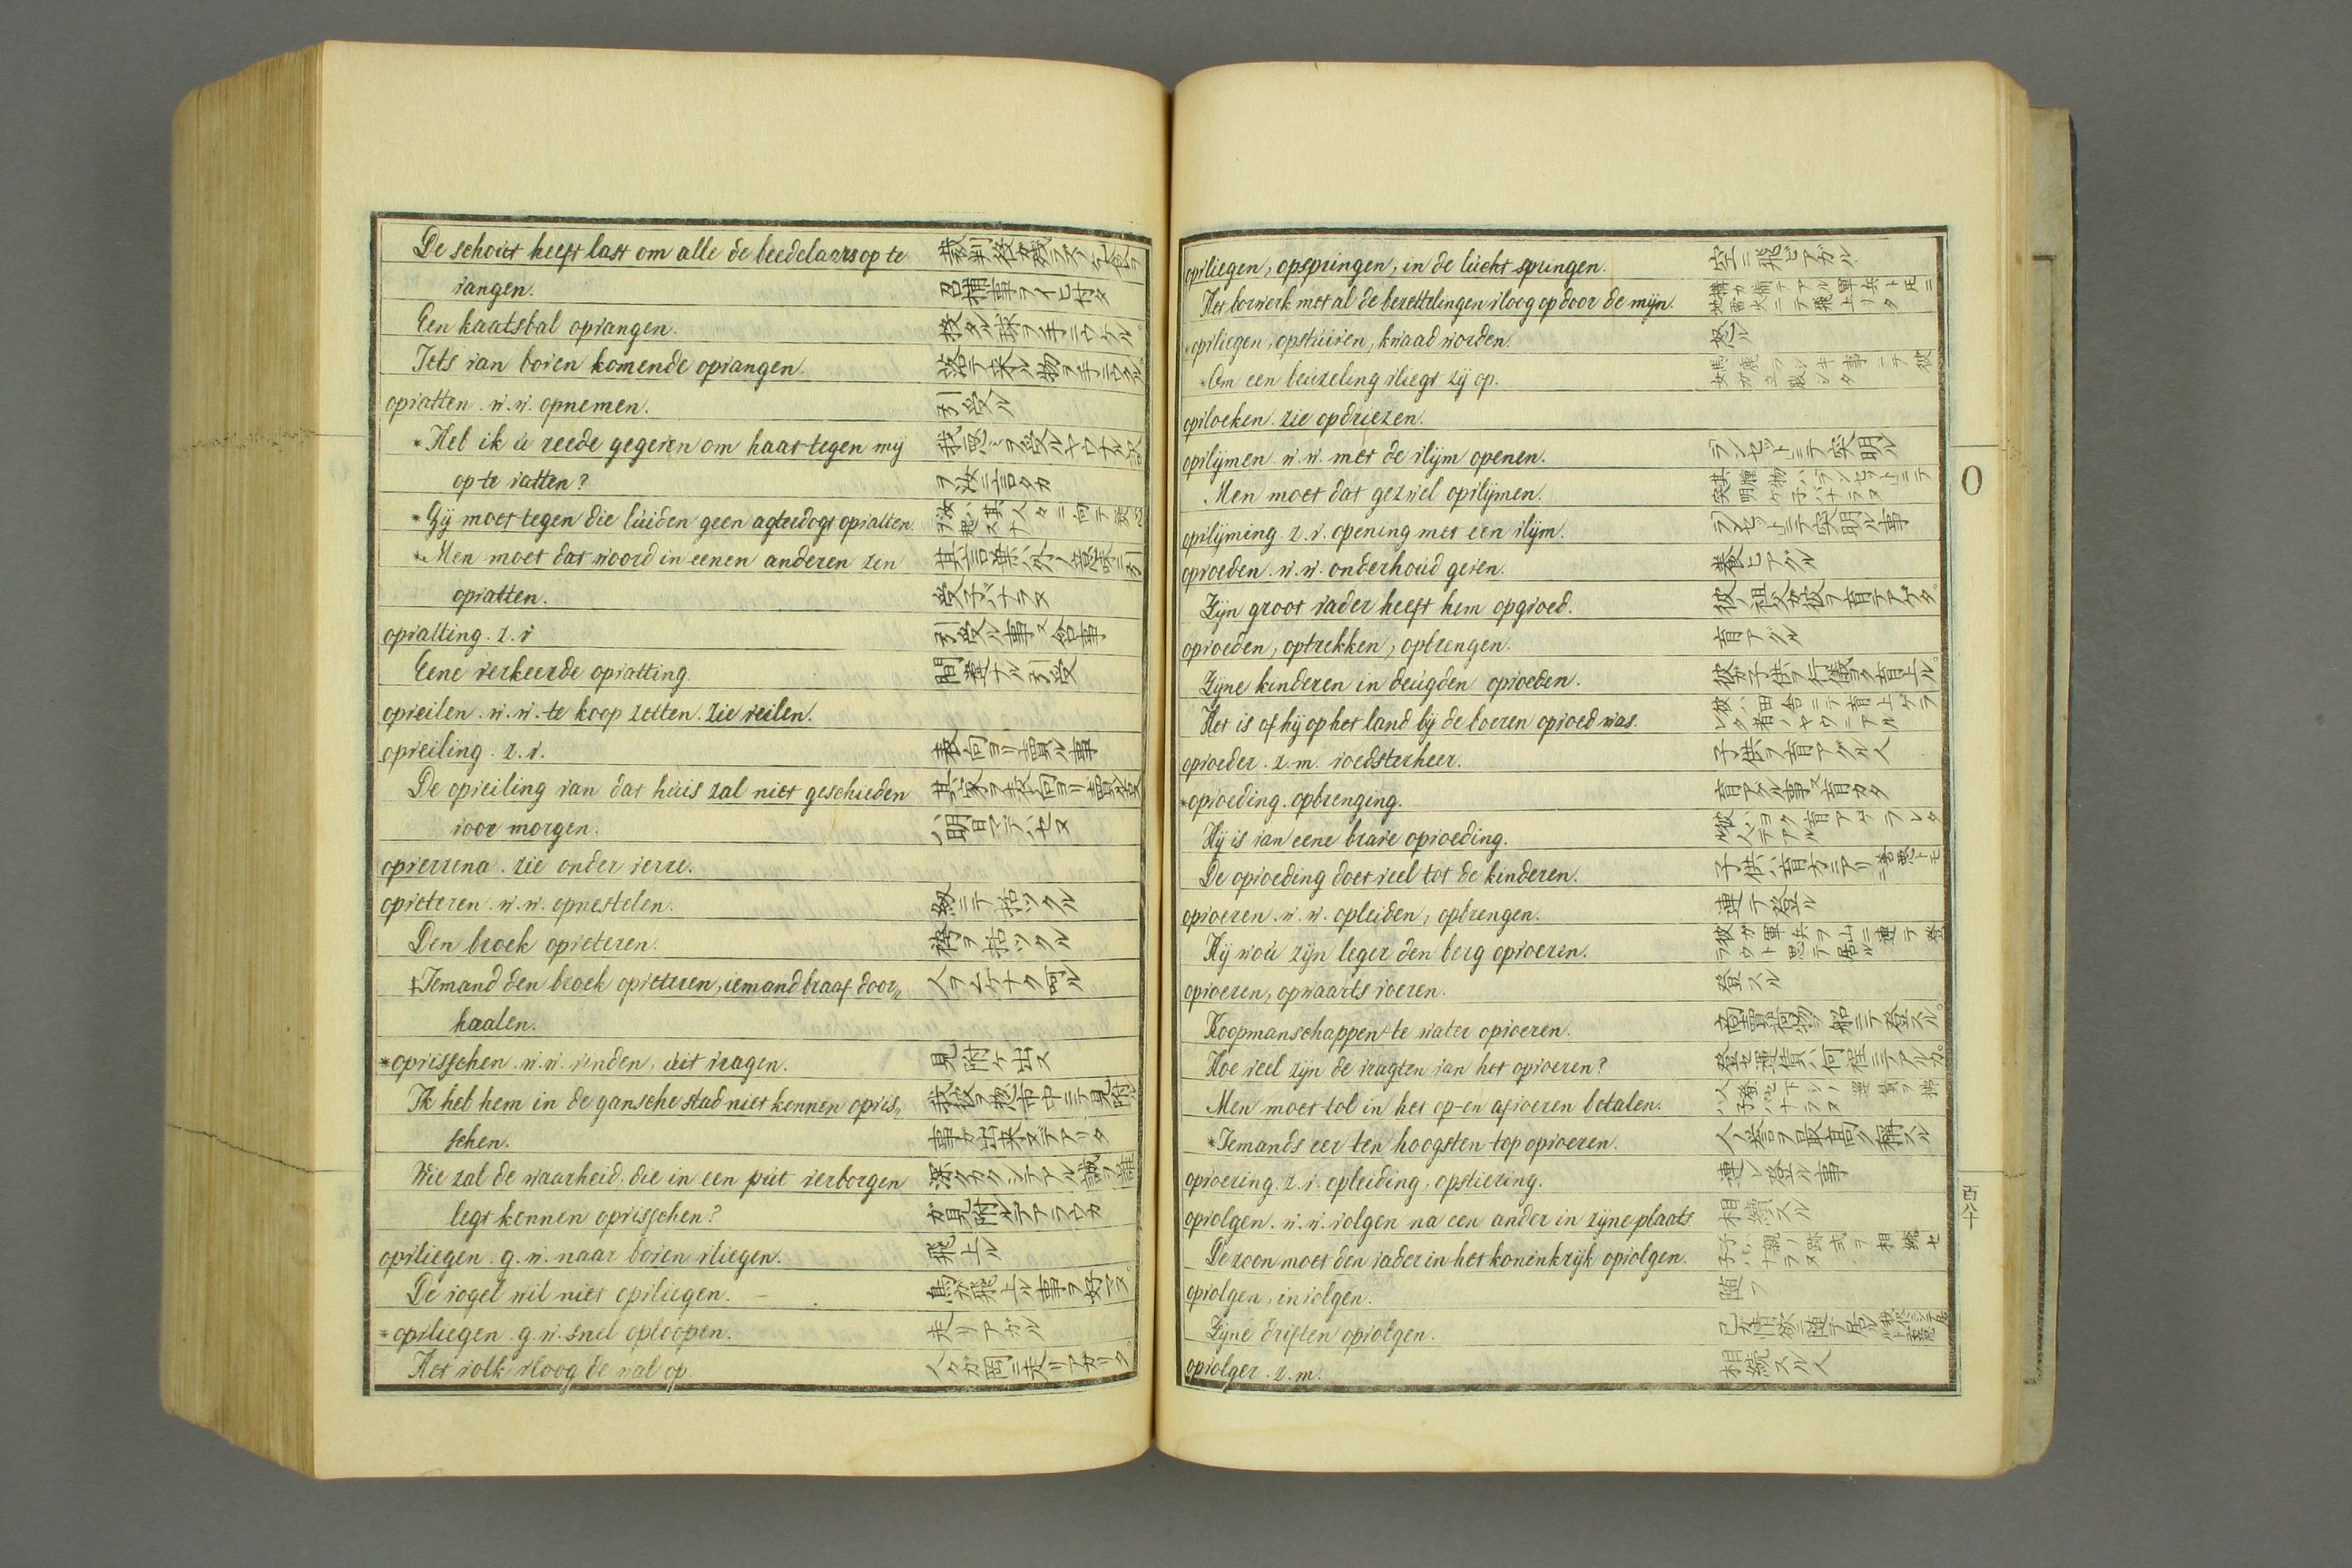 De schout heeft last om alle de beedelaars op te
vangen.
Een kaatsbal opvangen. 投タル球ヲ手ニウケル。
Iets van boven komende opvangen. 落テ来ル物ヲ手ニウケル。
opvatten. w.w. opnemen. 引受ル
*Heb ik ú reede gegeven om haar tegen mij
op te vatten? ヲ汝ニ言タカ
*Gij moet tegen die lúiden geen agterdogt opvatten.
*Men moet dat woord in eenen anderen zin 其言葉ハ外ノ意味ニ引
opvatten. 受子バナラヌ
opvatting. z.v
Eene verkeerde opvatting. 間違ナル引受
opveilen. w.w. te koop zetten. zie veilen.
opveiling. z.v. 表向ヨリ賣ル事
De opveiling van dat húis zal niet geschieden 其家ヲ表向ヨリ賣ル事
voor morgen. ハ明日マデハセヌ
opverzena. zie onder verze.
opveteren. w.w. opnestelen. 紐ニテ括ツクル
Den broek opveteren. 袴ヲ括ツクル
‡Iemand den broek opveteren, iemand braaf door„
haalen.
*opvisschen. w.w. vinden, úit vragen. 見附ケ出ス
Ik heb hem in de gansche stad niet konnen opvis„ 我彼ヲ惣市中ニテ見附ル
schen. 事ガ出来ズデアリタ
Wie zal de waarheid. die in een pút verborgen 深クカクシテアル誠ヲ誰
legt konnen opvisschen? ガ見附ルデアラウカ
opvliegen. g.w. naar boven vliegen. 飛上ル
De vogel wil niet opvliegen. 鳥ガ飛上ル事ヲ好マヌ。
*opvliegen. g.w. snel oploopen. 走リアガル
Het volk vloog de wal op. 人々ガ岡ニ走リアガリタ。
opvliegen, opspringen, in de lúcht springen. 空ニ飛ビアガル
Het borwerk met al de bezettelingen vloog op door de mijn.
*opvliegen, opstúiven, kwaad worden. 怒ル
*Om een beúzeling vliegt zij op.
opvloeken. zie opdriezen.
opvlijmen. w.w. met de vlijm openen. ランセットニテ突明ル
Men moet dat gezwel opvlijmen. 其腫物ハランセットニテ突明ケ子バナラヌ
opvlijming. z.v. opening met een vlijm. ランセットニテ突明ル事
opvoeden. w.w. onderhoúd geven. 養ヒアグル
Zijn groot vader heeft hem opgvoed. 彼ノ祖父ガ彼ヲ育テアゲタ。
opvoeden, optrekken, opbrengen. 育アグル
Zijne kinderen in deúgden opvoeden. 彼ガ子供ヲ行儀ヨク育上ル。
Het is of hij op het land bij de boeren opvoed was. 彼ハ田舎ニテ育上ゲラレタ者ノヤウニアル
opvoeder. z.m. voedsterheer. 子供ヲ育アグル人
*opvoeding. opbrenging. 育アグル事又育カタ
Hij is van eene brave opvoeding. 彼ハヨク育アゲラレタ人デアル
De opvoeding doet veel tot de kinderen.
opvoeren. w.w. opleiden, opbrengen. 連テ登ル
Hij woú zijn leger den berg opvoeren. 彼ガ軍兵ヲ山ニ連テ登ラウト思テ居ル
opvoeren, opwaarts voeren. 登スル
Koopmanschappen te water opvoeren. 商賣荷物ヲ船ニテ登スル。
Hoe veel zijn de vragten van het opvoeren? 登セ運賃ハ何程デアルカ。
Men moet tol in het op-en afvoeren betalen.
*Iemands eer ten hoogsten top opvoeren.
opvoering. z.v. opleiding, opstiering. 連レ登ル事
opvolgen. w.w. volgen na een ander in zijne plaats 相續スル
De zoon moet den vader in het koninkrijk opvolgen.
opvolgen, involgen. 随フ
Zijne driften opvolgen.
opvolger. z.m. 相続スル人
O
百八十